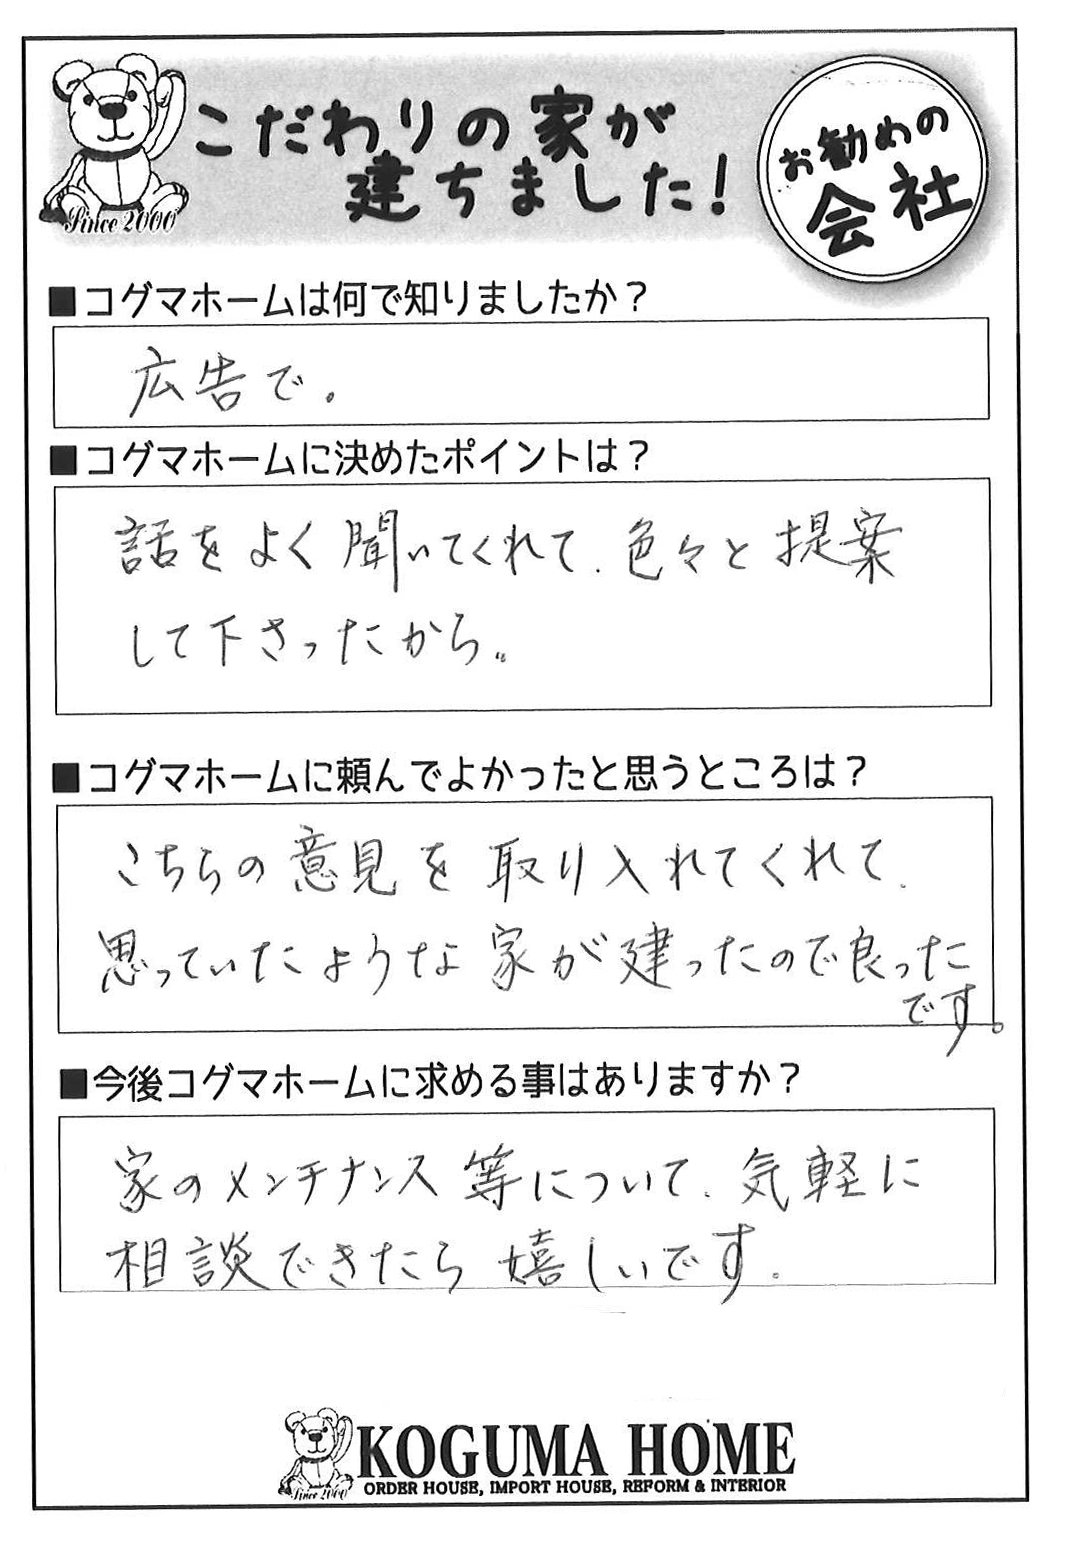 こだわりの家が
建ちました！
お勧めの
会社
Since 2000
■コグマホームは何で知りましたか？
広告で。
■コグマホームに決めたポイントは？
話をよく聞いてくれて、色々と提案
して下さったから。
■コグマホームに頼んでよかったと思うところは？
こちらの意見を取り入れてくれて、
思っていたような家が建ったので良った
です。
■今後コグマホームに求める事はありますか？
家のメンテナンス等について、気軽に
相談できたら嬉しいです。
KOGUMA HOME
ORDER HOUSE, IMPORT HOUSE, REFORM & INTERIOR
Since 2000